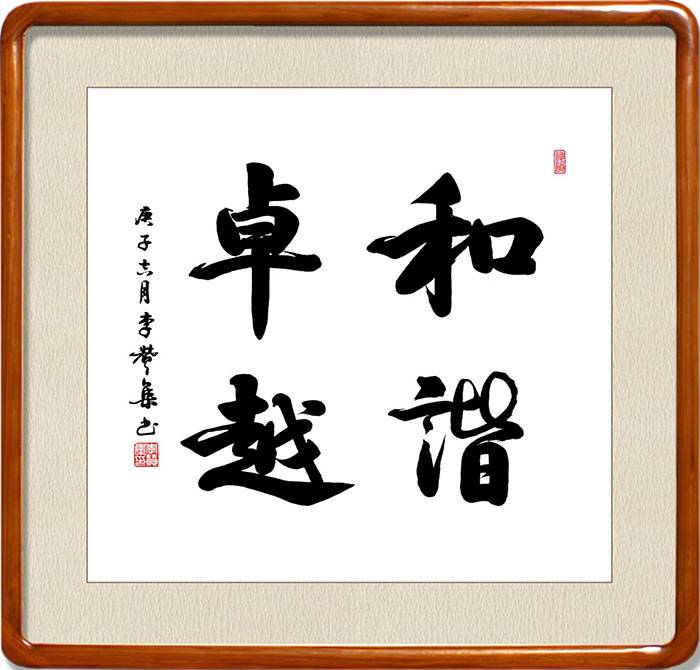 和諧
卓越
庚子六月李贊集书